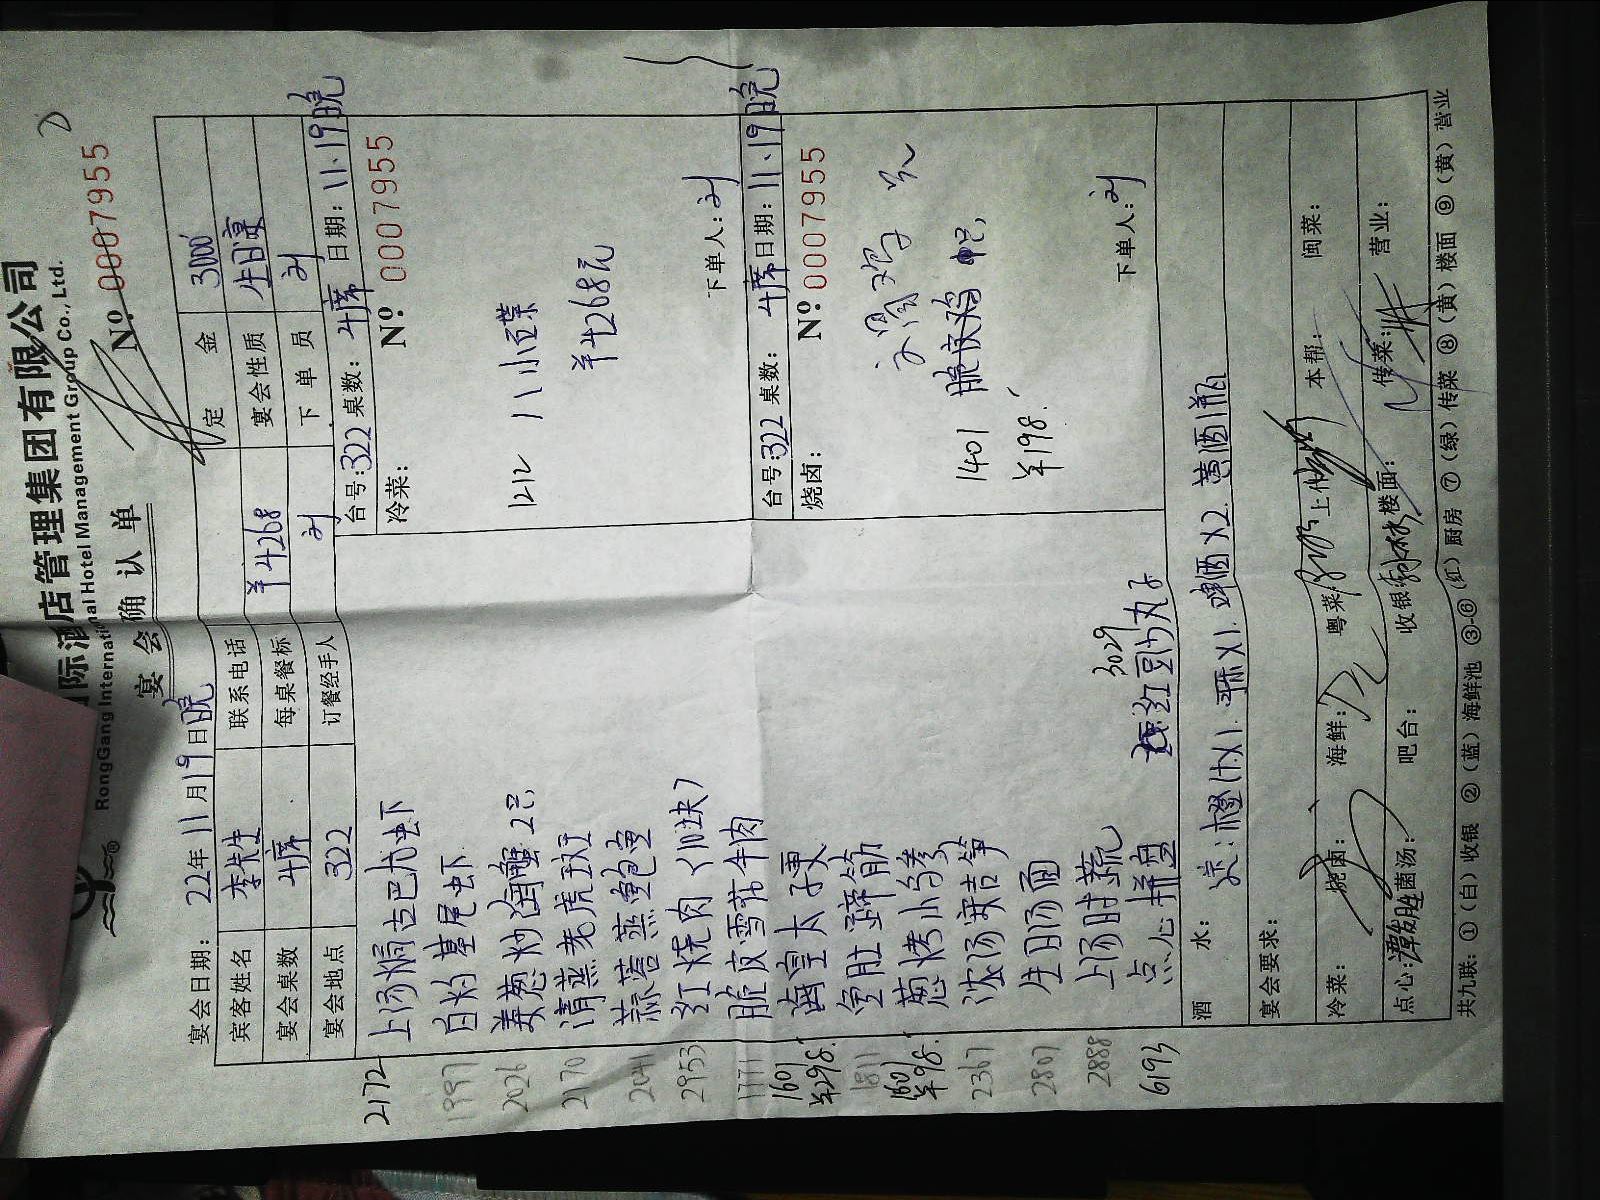 国际酒店管理集团有限公司
RongGang International Hotel Management Group Co., Ltd.
宴会确认单
Nº 0007955
宴会日期: 22年11月19日晚
宾客姓名 李先生 联系电话 定金 3000
宴会桌数 4席 每桌餐标 ¥4268 宴会性质 生日宴
宴会地点 322 订餐经手人 刘 下单员 刘
2172 上汤焗古巴龙虾
1997 白灼基尾虾
2026 姜葱炒海蟹2只
2170 清蒸老虎斑
2041 蒜蓉蒸鲍鱼
2953 红烧肉(10块)
1771 脆皮雪花牛肉
1601 ¥298. 海皇太子羹
1811 鱼肚蹄筋
1601 ¥98. 葱烤小乌参
2367 浓汤娃吉笋
2807 生日汤面
2888 上汤时蔬
6193 点心拼盘
3029
红豆沙丸子
台号:322 桌数: 4席 日期: 11.19晚
冷菜: Nº 0007955
1212 八小豆菜
¥4268元
下单人: 刘
台号:322 桌数: 4席 日期: 11.19晚
烧卤: Nº 0007955
1401 脆皮鸡
¥198.
下单人: 刘
酒水: 橙汁x1. x1. 啤酒x2. 黄酒1瓶
宴会要求:
冷菜: 烧卤: 海鲜: 粤菜 上什 本帮: 闽菜:
点心: 菌汤: 吧台: 收银 楼面: 传菜: 营业:
共九联: ①(白)收银 ②(蓝)海鲜池 ③-⑥(红)厨房 ⑦(绿)传菜 ⑧(黄)楼面 ⑨(黄)营业